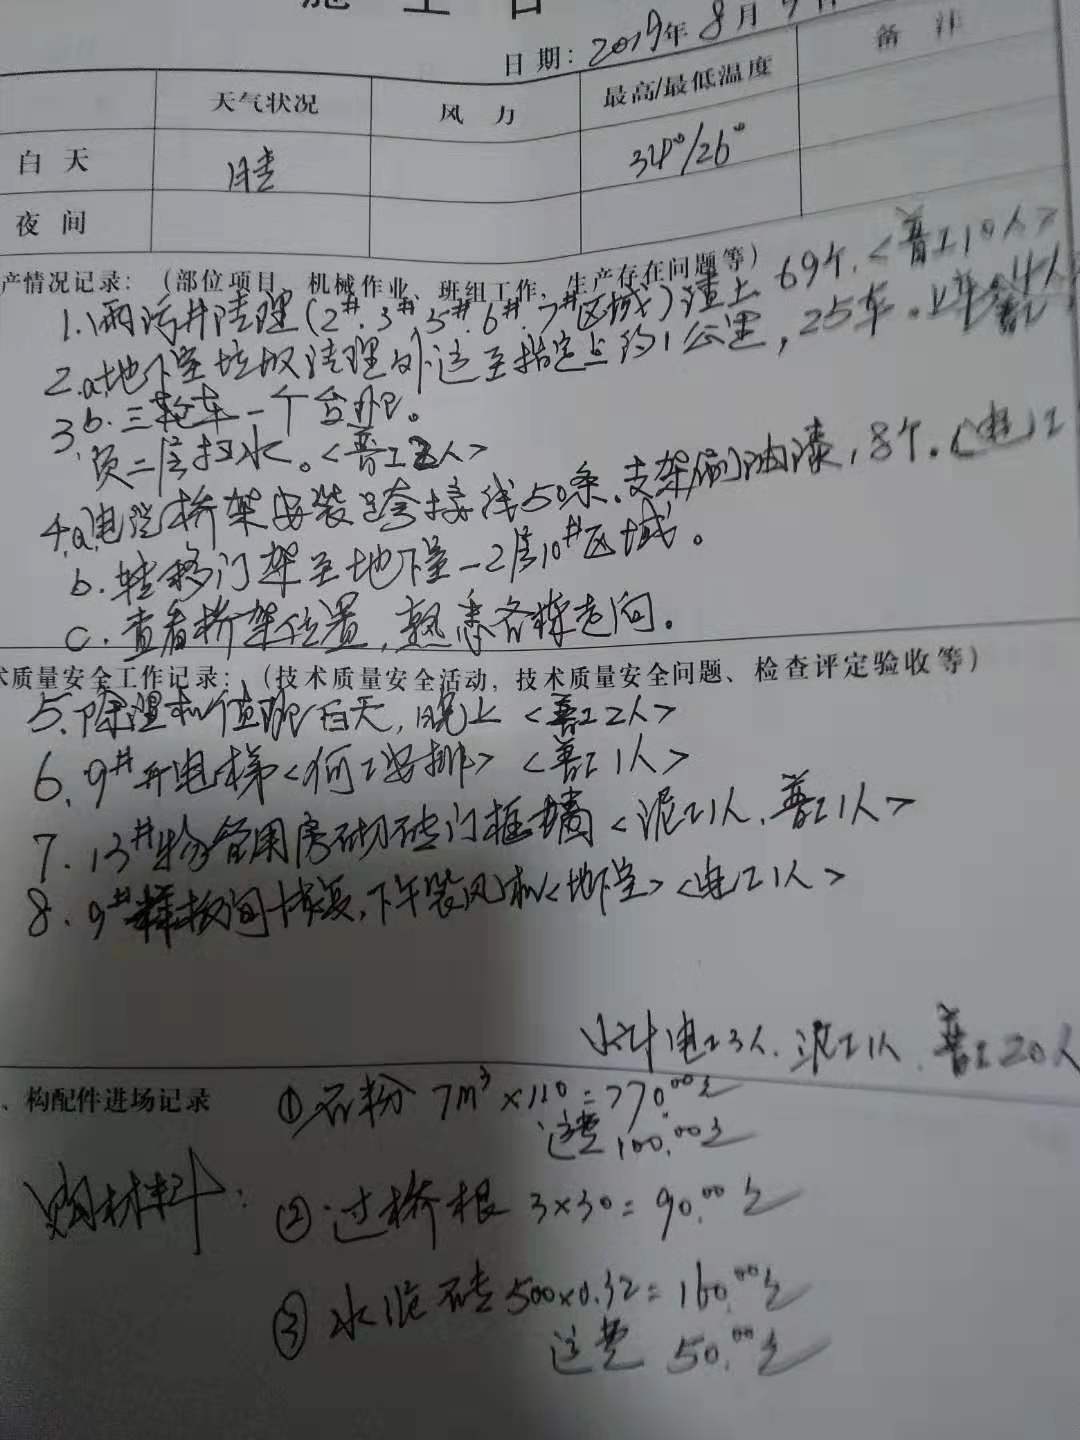 施工日
日期：2019年8月9日
天气状况 风力 最高/最低温度 备注
白天 晴 34°/26°
夜间
产情况记录：（部位项目、机械作业、班组工作，生产存在问题等）
1.雨污井清理(2#.3#.5#.6#.7#区域)渣土69个.<普工10人>
2.a.地下室垃圾清理外运至指定点约1公里，25车。
b.三轮车一个台班。
3.负二层扫水。<普工2人>
4.a.电缆桥架安装跨接线50条.支架刷油漆，8个.<电工
b.转移门架至地下室-2层10#区域。
c.查看桥架位置，熟悉各栋走向。
术质量安全工作记录：（技术质量安全活动，技术质量安全问题、检查评定验收等）
5.除湿机值班白天，晚上<普工2人>
6.9#开电梯<何工安排><普工1人>
7.13#物管用房砌砖门框墙<泥工1人.普工1人>
8.9#样板间恢复，下午装风机<地下室><电工1人>
小计电工3人.泥工1人.普工20人
、构配件进场记录
购材料：
①石粉 7m³×110=770.00元
运费100.00元
②过桥板 3×30=90.00元
③水泥砖500×0.32=160.00元
运费 50.00元